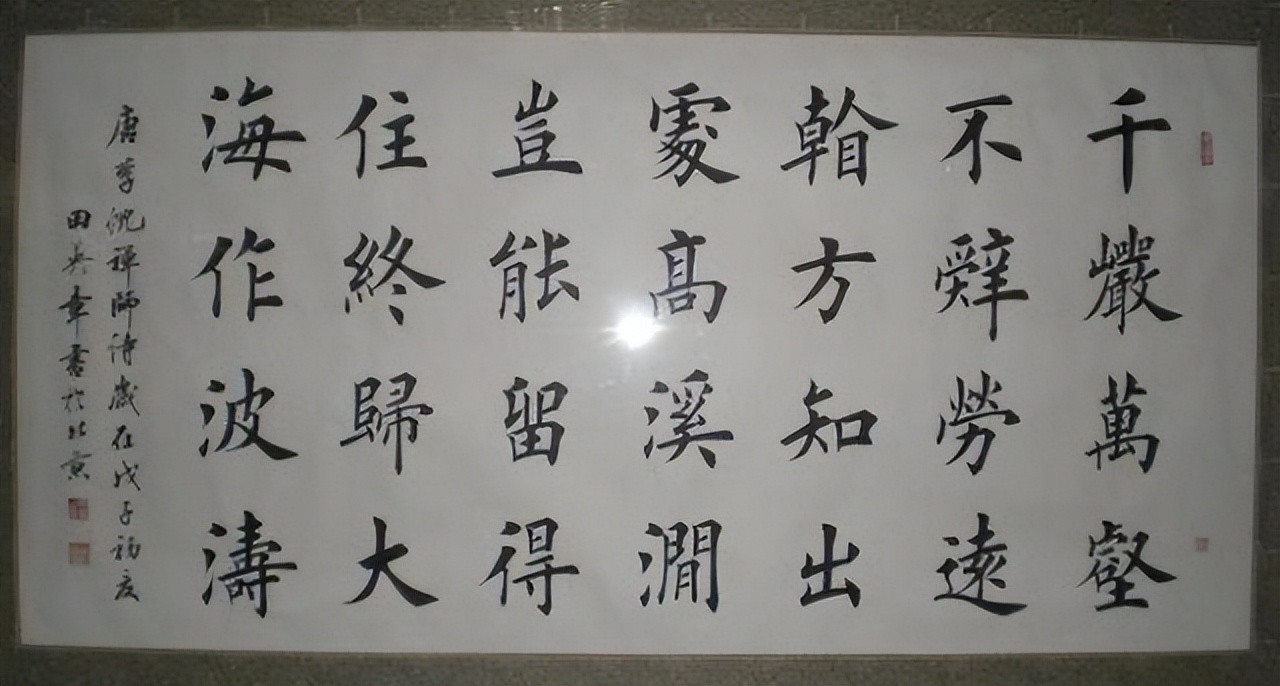 千巗萬壑
不辤勞遠
看方知出
處髙溪澗
豈能留得
住終歸大
海作波濤
唐李忱禪師詩歲在戊子初夏
田英章書於北京